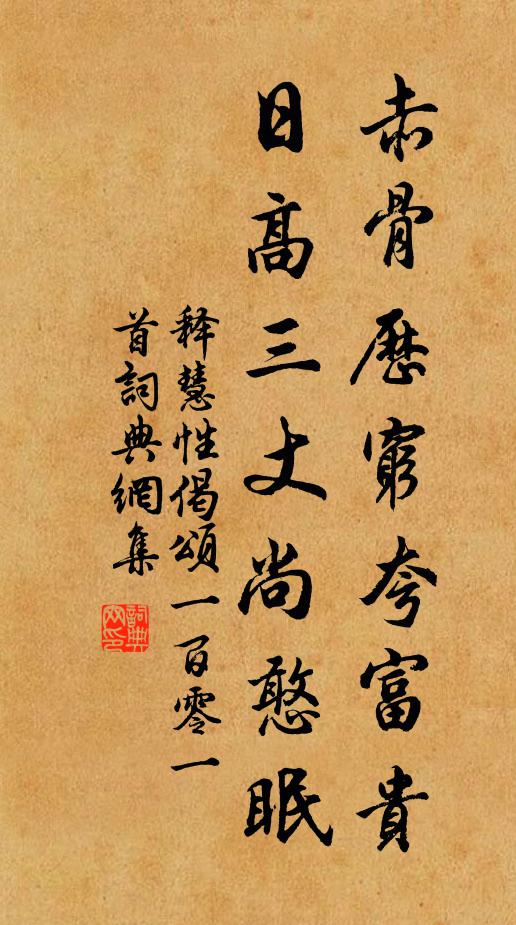 赤骨歷窮夸富貴
日高三丈尚憨眠
釋慧性偈頌一百零一
首詞典網集
詞典网印